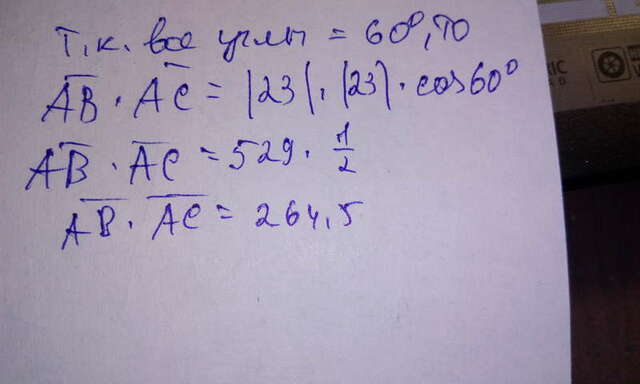 Т.к. все углы = 60°, то
AB · AC = |23| · |23| · cos60°
AB · AC = 529 · 1/2
AB · AC = 264,5